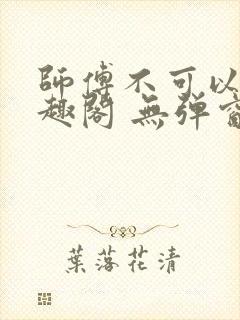 師傅不可以
趣閣 無彈
葉落花清